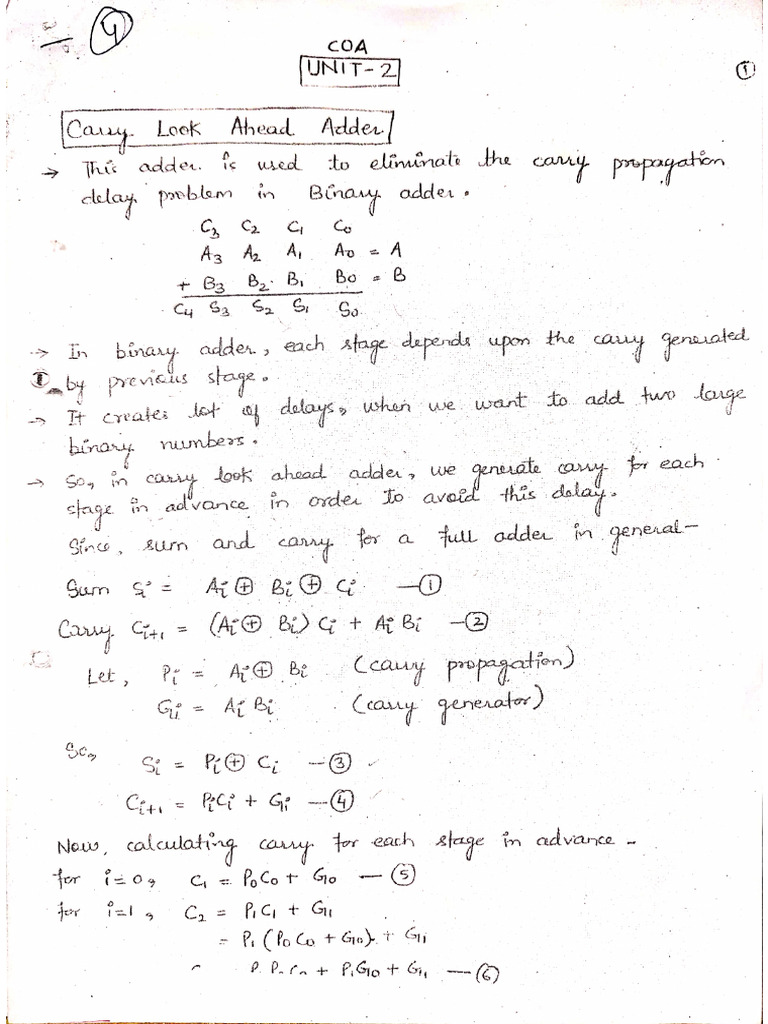 9
COA
UNIT-2
1
Carry Look Ahead Adder
→ This adder is used to eliminate the carry propagation
delay problem in Binary adder.
C3 C2 C1 C0
A3 A2 A1 A0 = A
+ B3 B2 B1 B0 = B
C4 S3 S2 S1 S0
→ In binary adder, each stage depends upon the carry generated
by previous stage.
→ It creates lot of delays, when we want to add two large
binary numbers.
→ So, in carry look ahead adder, we generate carry for each
stage in advance in order to avoid this delay.
Since, sum and carry for a full adder in general—
Sum Si = Ai ⊕ Bi ⊕ Ci —①
Carry Ci+1 = (Ai ⊕ Bi) Ci + Ai Bi —②
Let, Pi = Ai ⊕ Bi (carry propagation)
Gi = Ai Bi (carry generator)
So,
Si = Pi ⊕ Ci —③
Ci+1 = PiCi + Gi —④
Now, calculating carry for each stage in advance -
for i=0, C1 = P0C0 + G0 —⑤
for i=1, C2 = P1C1 + G1
= P1 (P0C0 + G0) + G1
P1P0C0 + P1G0 + G1 —⑥